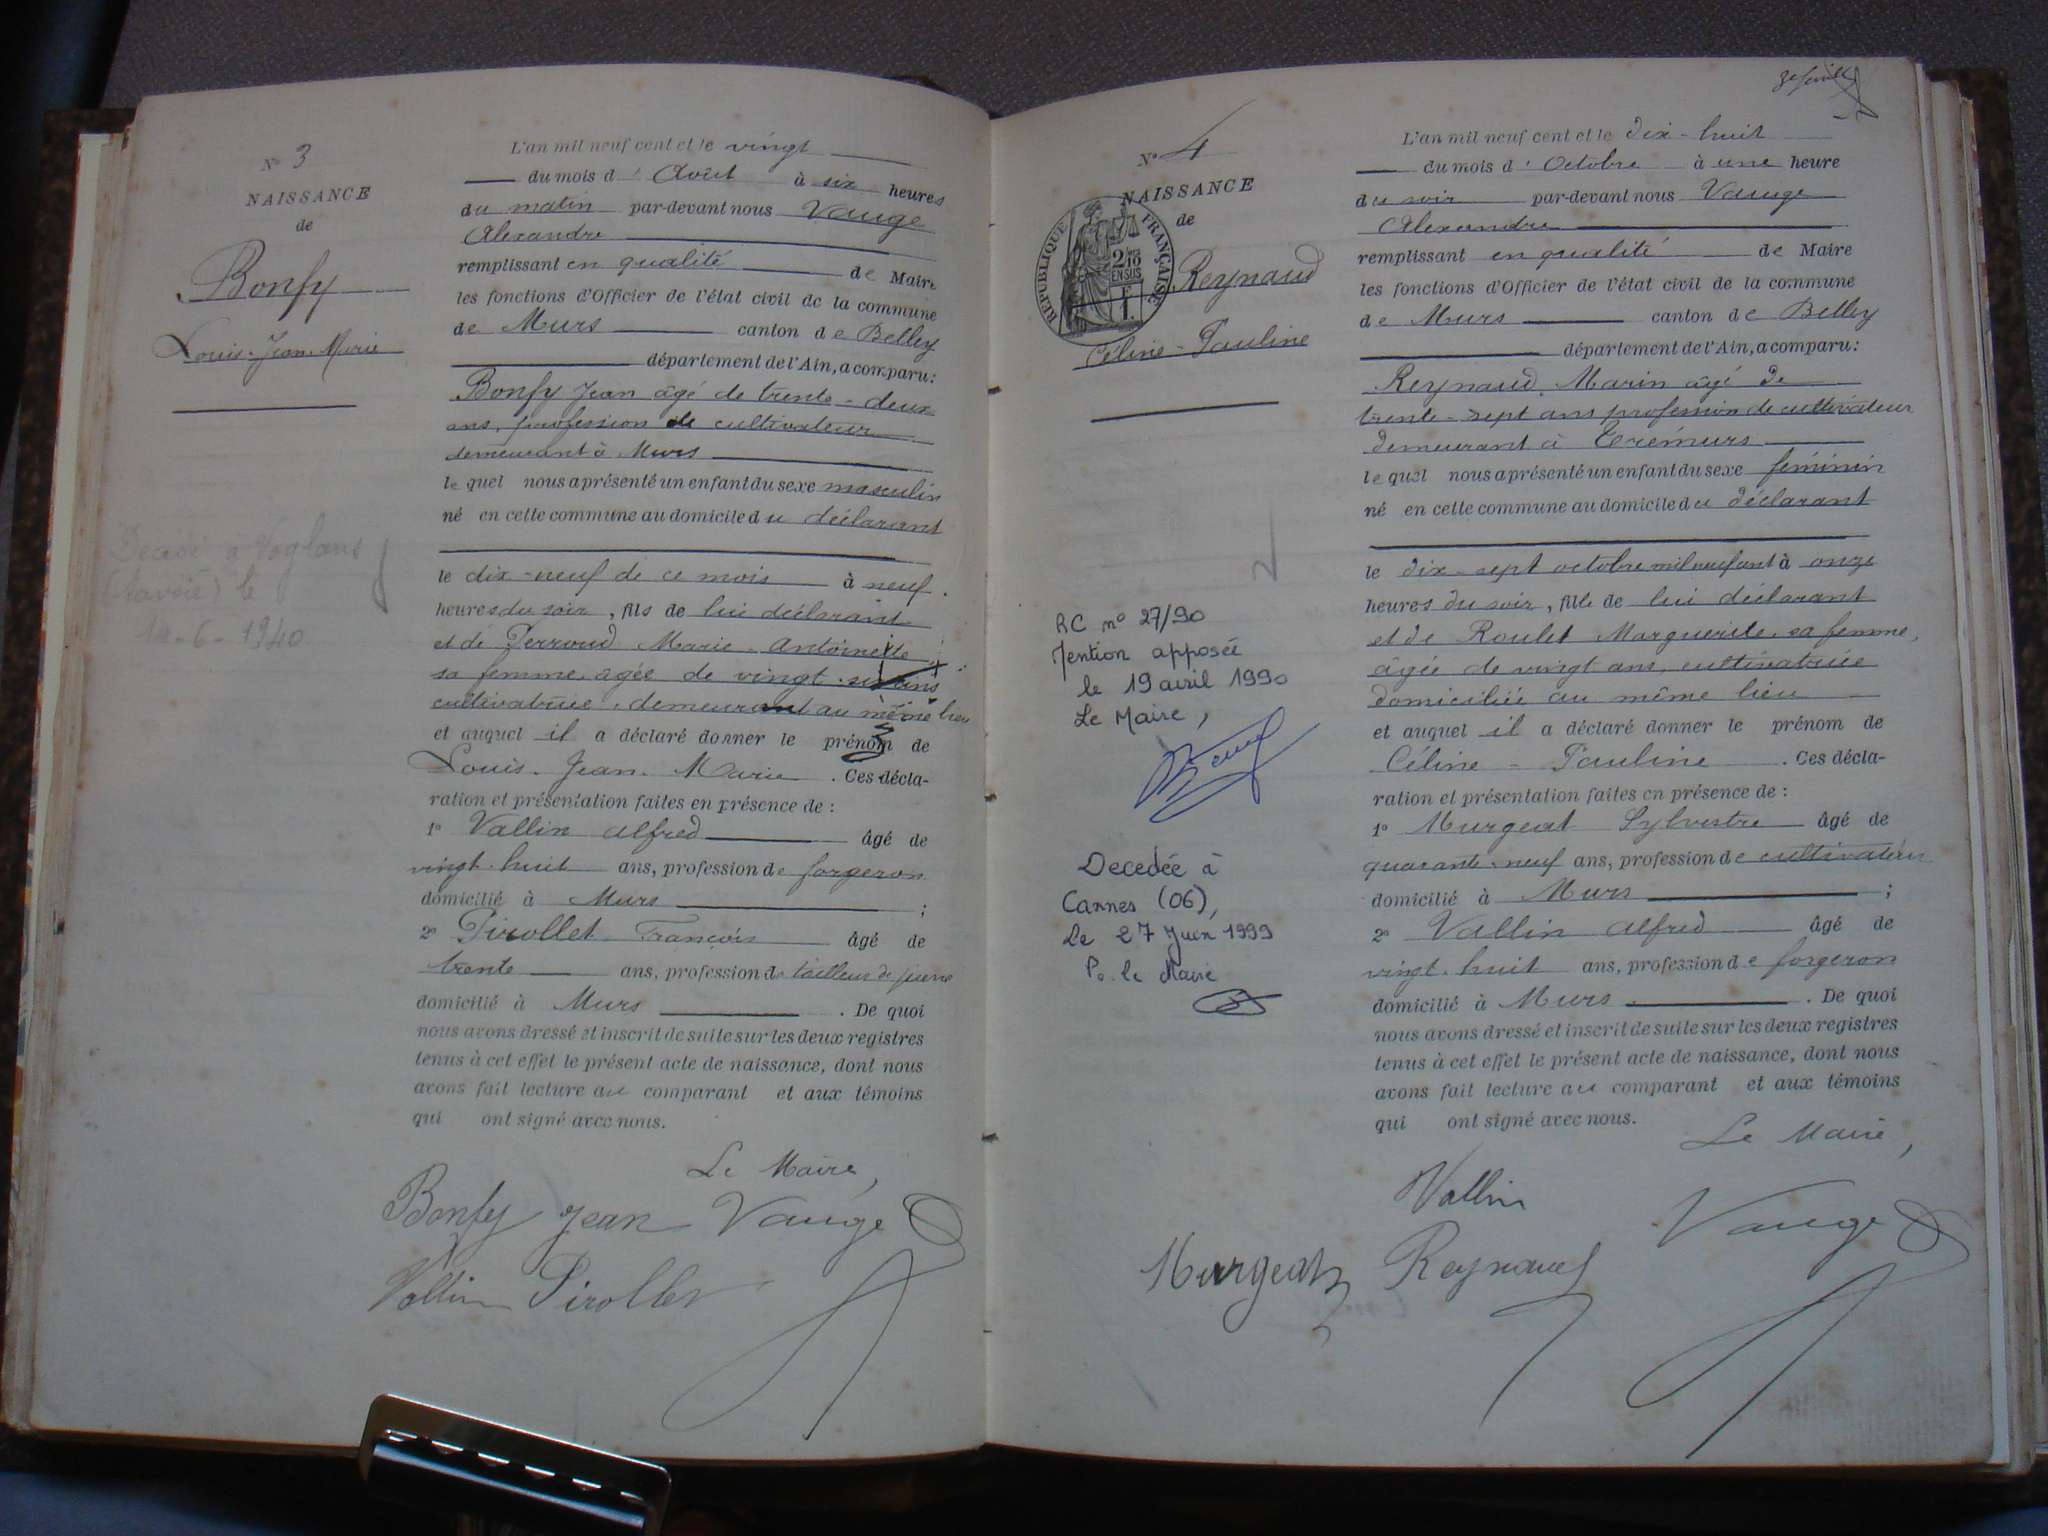 N° 3
NAISSANCE
de
Bonfy
Louis-Jean-Marie
Décédé à Voglans
(Savoie) le
14-6-1940
L'an mil neuf cent et le vingt
du mois d'Août à six heures
du matin par-devant nous Vauge
Alexandre
remplissant en qualité de Maire
les fonctions d'Officier de l'état civil de la commune
de Murs canton de Belley
département de l'Ain, a comparu:
Bonfy Jean âgé de trente-deux
ans, profession de cultivateur
demeurant à Murs
lequel nous a présenté un enfant du sexe masculin
né en cette commune au domicile du déclarant
le dix-neuf de ce mois à neuf
heures du soir, fils de lui déclarant
et de Perroud Marie-Antoinette
sa femme, agée de vingt six ans
cultivatrice, demeurant au même lieu
et auquel il a déclaré donner le prénom de
Louis-Jean-Marie. Ces décla-
ration et présentation faites en présence de:
1° Vallin Alfred âgé de
vingt-huit ans, profession de forgeron
domicilié à Murs;
2° Pirollet François âgé de
trente ans, profession de tailleur de pierre
domicilié à Murs. De quoi
nous avons dressé et inscrit de suite sur les deux registres
tenus à cet effet le présent acte de naissance, dont nous
avons fait lecture au comparant et aux témoins
qui ont signé avec nous.
Le Maire,
Bonfy Jean Vauge
Vallin Pirollet
N° 4
NAISSANCE
de
RÉPUBLIQUE FRANÇAISE
2/10 EN SUS
F 1.
Reynaud
Céline-Pauline
RC n° 27/90
Mention apposée
le 19 avril 1990
Le Maire,
Decedée à
Cannes (06),
Le 27 Juin 1999
Po. le Maire
L'an mil neuf cent et le dix-huit
du mois d'Octobre à une heure
du soir par-devant nous Vauge
Alexandre
remplissant en qualité de Maire
les fonctions d'Officier de l'état civil de la commune
de Murs canton de Belley
département de l'Ain, a comparu:
Reynaud Marin âgé de
trente-sept ans profession de cultivateur
demeurant à Crémurs
lequel nous a présenté un enfant du sexe féminin
né en cette commune au domicile du déclarant
le dix-sept octobre mil neuf cent à onze
heures du soir, fille de lui déclarant
et de Roulet Marguerite, sa femme,
âgée de vingt ans, cultivatrice
domiciliée au même lieu
et auquel il a déclaré donner le prénom de
Céline-Pauline. Ces décla-
ration et présentation faites en présence de:
1° Murgeat Sylvestre âgé de
quarante-neuf ans, profession de cultivateur
domicilié à Murs;
2° Vallin Alfred âgé de
vingt-huit ans, profession de forgeron
domicilié à Murs. De quoi
nous avons dressé et inscrit de suite sur les deux registres
tenus à cet effet le présent acte de naissance, dont nous
avons fait lecture au comparant et aux témoins
qui ont signé avec nous.
Le Maire,
Vallin
Vauge
Murgeat Reynaud